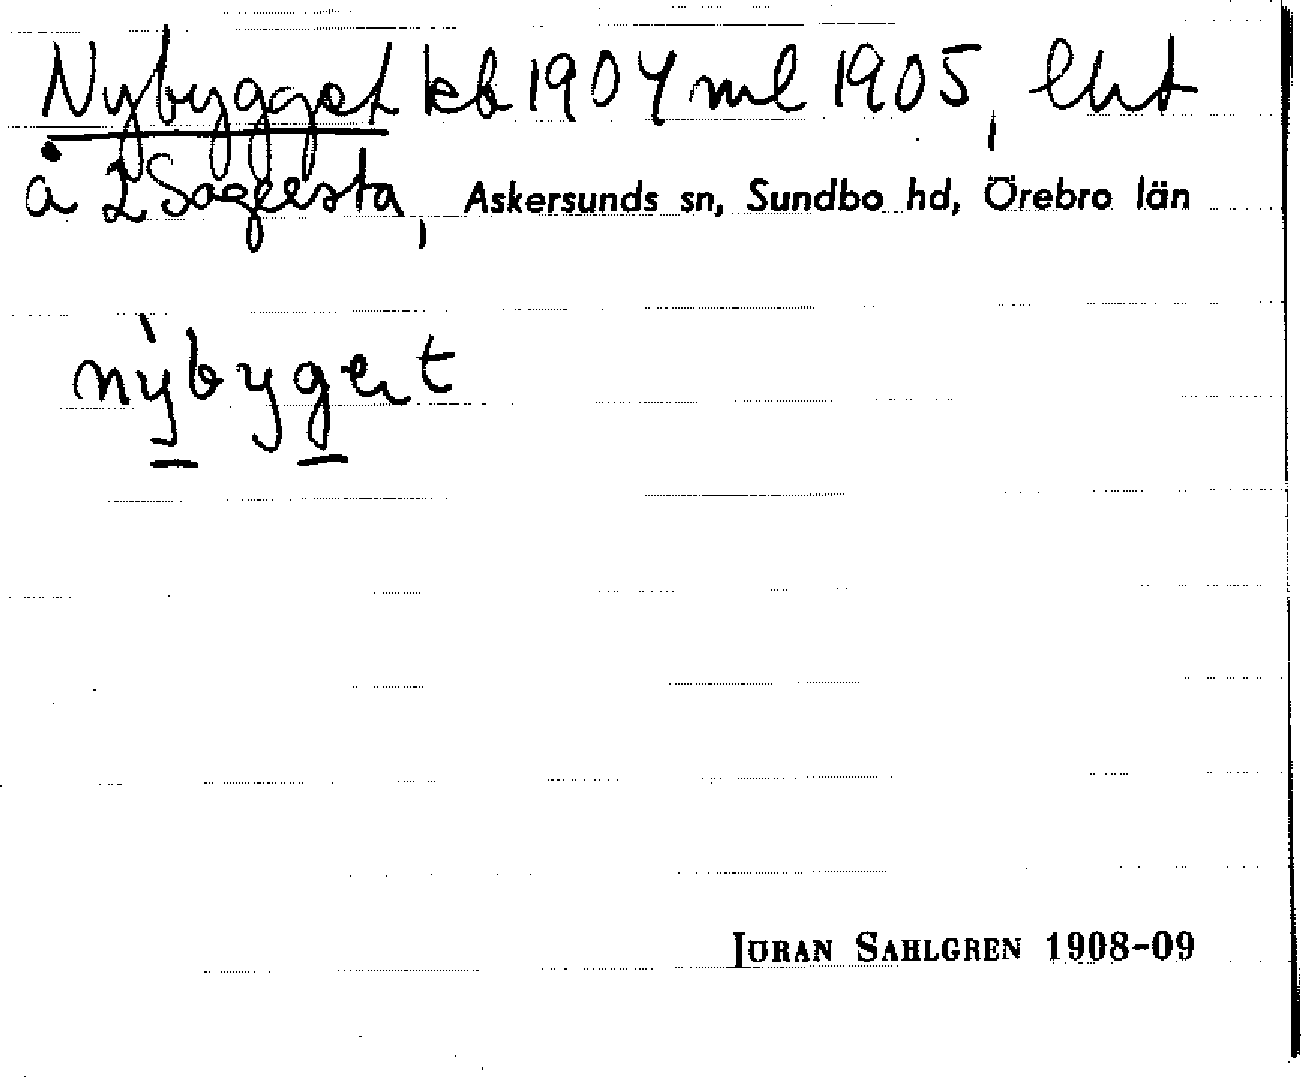 Nybygget kb 1904 ml 1905, lht
å 2 Sageersta, Askersunds sn, Sundbo hd, Örebro län
nỳbyget
JÖRAN SAHLGREN 1908-09